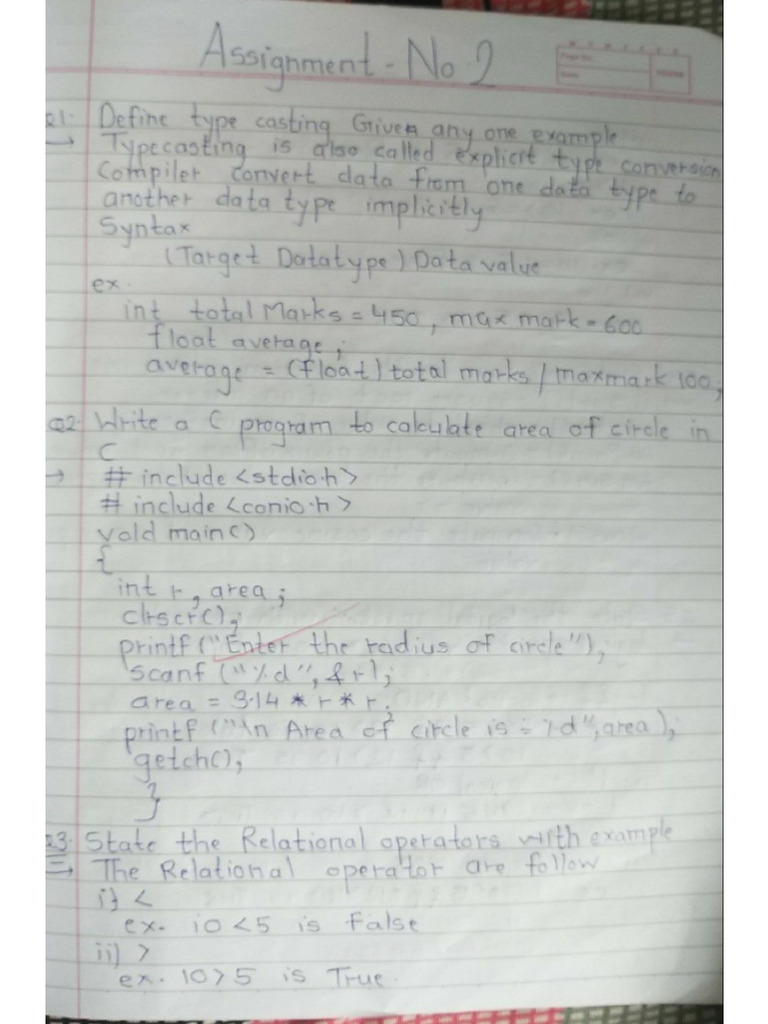 Assignment - No 2
Q1. Define type casting Given any one example
→ Typecasting is also called explicit type conversion
Compiler convert data from one data type to
another data type implicitly
Syntax
(Target Datatype) Data value
ex.
int total Marks = 450, max mark = 600
float average;
average = (float) total marks / maxmark 100;
Q2. Write a C program to calculate area of circle in
C
→ # include <stdio.h>
# include <conio.h>
void main()
{
int r, area;
clrscr();
printf ("Enter the radius of circle");
scanf ("%d", &r);
area = 3.14 * r * r;
printf ("\n Area of circle is = %d", area);
getch();
}
Q3. State the Relational operators with example
→ The Relational operator are follow
i) <
ex. 10 < 5 is False
ii) >
ex. 10 > 5 is True.